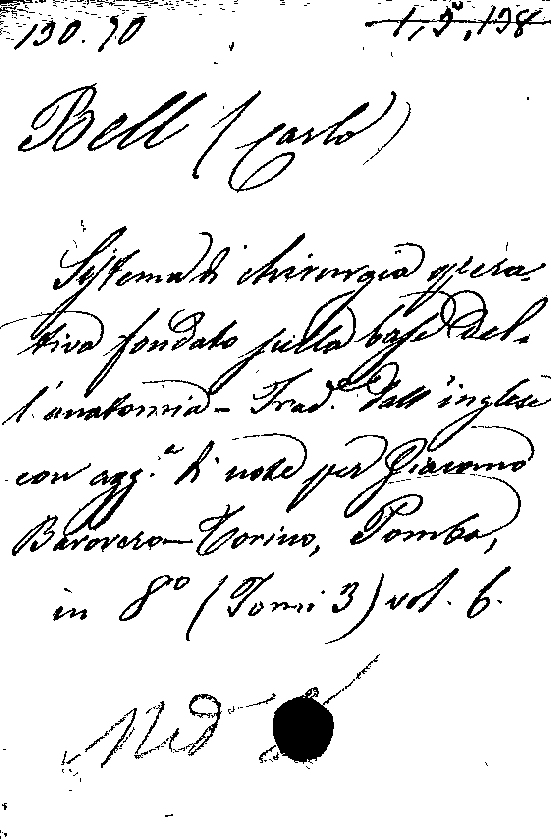 130.90 1,2,138
Bell (Carlo)
Systema di chirurgia opera-
tiva fondato sulla base del-
l'anatomia - Trad.e dall'inglese
con agg.e di note per Giacomo
Barovero - Torino, Pomba,
in 8º (Tomi 3) vol. 6.
Med